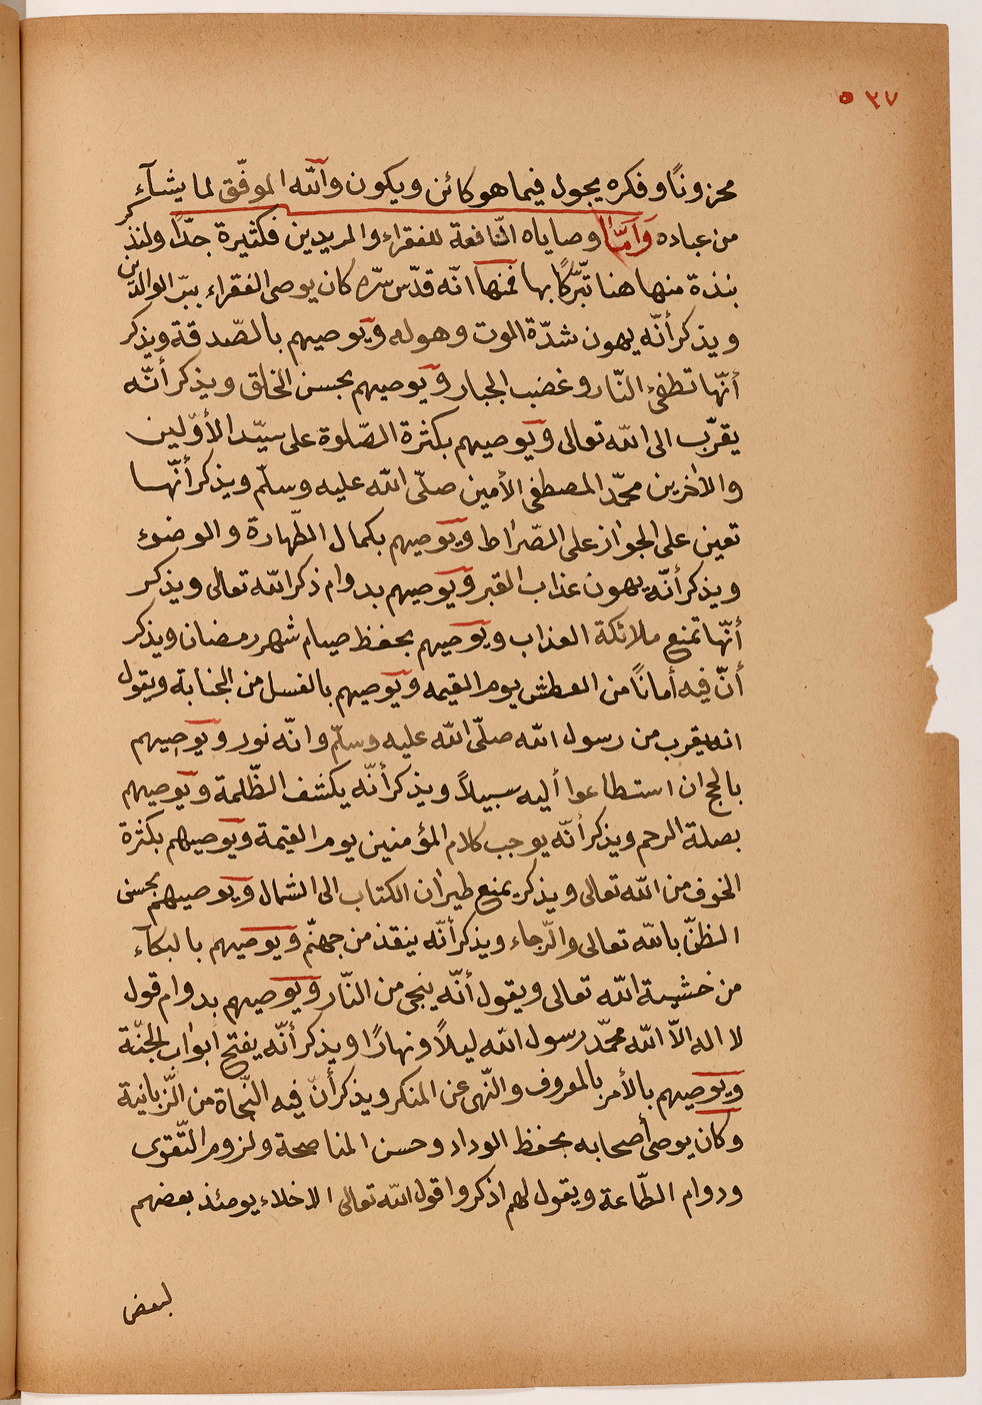 ٥٣٧
محزونًا وفكره يجول فيما هو كائن ويكون والله الموفّق لما يشآء
من عباده وَأمّا وصاياه النّافعة للفقراء والمريدين فكثيرة جدّا ولنذكر
بنذة منها هنا تبّركًا بها فمنها انّه قدّس سّره كان يوصى الفقراء ببرّ الوالدين
ويذكر أنّه يهون شدّة الموت وهوله ويوصيهم بالصّدقة ويذكر
أنّها تطفىء النّار وغضب الجبار ويوصيهم بحسن الخلق ويذكر أنّه
يقرّب الى الله تعالى ويوصيهم بكثرة الصّلوة على سيّد الأوّلين
والاٰخرين محمّد المصطفى الأمين صلّى الله عليه وسلّم ويذكر أنّها
تعين على الجواز على الصّراط ويوصيهم بكمال الطّهارة والوضوء
ويذكر أنّه يهون عذاب القبر ويوصيهم بدوام ذكر الله تعالى ويذكر
أنّها تمنع ملائكة العذاب ويوصيهم بحفظ صيام شهر رمضان ويذكر
أنّ فيه أمانًا من العطش يوم القيمه ويوصيهم بالغسل من الجنابة ويقول
انه يقرب من رسول الله صلّى الله عليه وسلّم وانّه نور ويوصيهم
بالحج ان استطاعوا أليه سبيلاً ويذكر أنّه يكشف الظّلمة ويوصيهم
بصلة الرحم ويذكر أنّه يوجب كلام المؤمنين يوم القيمة ويوصيهم بكثرة
الخوف من الله تعالى ويذكر يمنع طيران الكتاب الى الشمال ويوصيهم بحسن
الظنّ بالله تعالى والرّجاء ويذكر أنّه ينقذ من جهنّم ويوصيهم بالبكآء
من خشية الله تعالى ويقول أنّه ينجى من النّار ويوصيهم بدوام قول
لا اله الاّ الله محمّد رسول الله ليلاً ونهارًا ويذكر أنّه يفتح ابواب الجنّة
ويوصيهم بالأمر بالمعروف والنّهى عن المنكر ويذكر أنّ فيه النّجاة من الزّبانية
وكان يوصى أصحابه بحفظ الوداد وحسن المناصحة ولزوم التّقوى
ودوام الطّاعة ويقول لهم اذكروا قول الله تعالى الاخلاء يومئذ بعضهم
لبعض